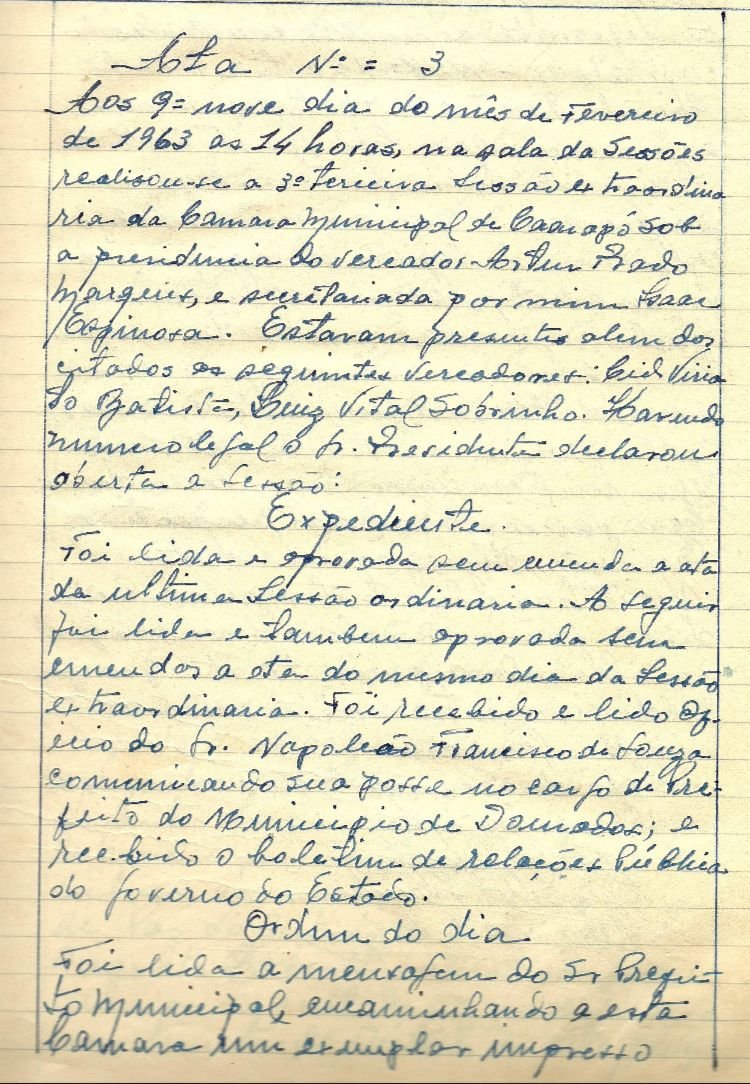 Ata Nº = 3
Aos 9= nove dia do mês de Fevereiro
de 1963 as 14 horas, na sala da Sessões
realisou-se a 3ª terceira Sessão extraordina
ria da Camara Municipal de Caarapó Sob
a presidencia do vereador Artur Prado
Marques, e secretariada por mim Isaac
Espinosa. Estavam presentes alem dos
citados os seguintes vereadores: Cid Viria
to Batista, Luiz Vital Sobrinho. Havendo
numero legal o Sr. Presidente declarou
aberta a Sessão:
Expediente.
Foi lida e aprovada sem emenda a ata
da ultima Sessão ordinaria. A seguir
foi lida e tambem aprovada sem
emendas a ata do mesmo dia da Sessão
extraordinaria. Foi recebido e lido Of-
icio do Sr. Napoleão Francisco de Souza
comunicando sua posse no cargo de Pre-
feito do Municipio de Dourados; e
recebido o boletim de relações Pública
do Governo do Estado.
Ordem do dia
Foi lida a mensagem do Sr Prefei-
to Municipal, encaminhando a esta
Camara um exemplar impresso